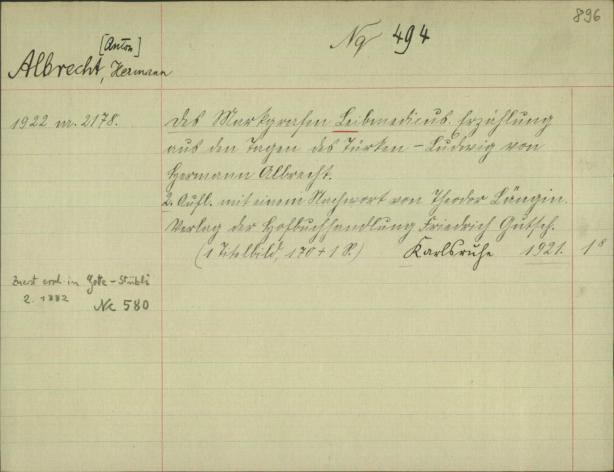 896
Nq 494
[Anton]
Albrecht, Hermann
1922 nr. 2178.
Des Markgrafen Leibmedicus. Erzählung
aus den Tagen des Türken-Ludwig von
Hermann Albrecht.
2. Aufl. mit einem Nachwort von Theodor Längin.
Verlag der Hofbuchhandlung Friedrich Gutsch.
(1 Titelbild, 170 + 1 S.) Karlsruhe 1921. 1 8
Zuerst in
2. 1882
Nc 580